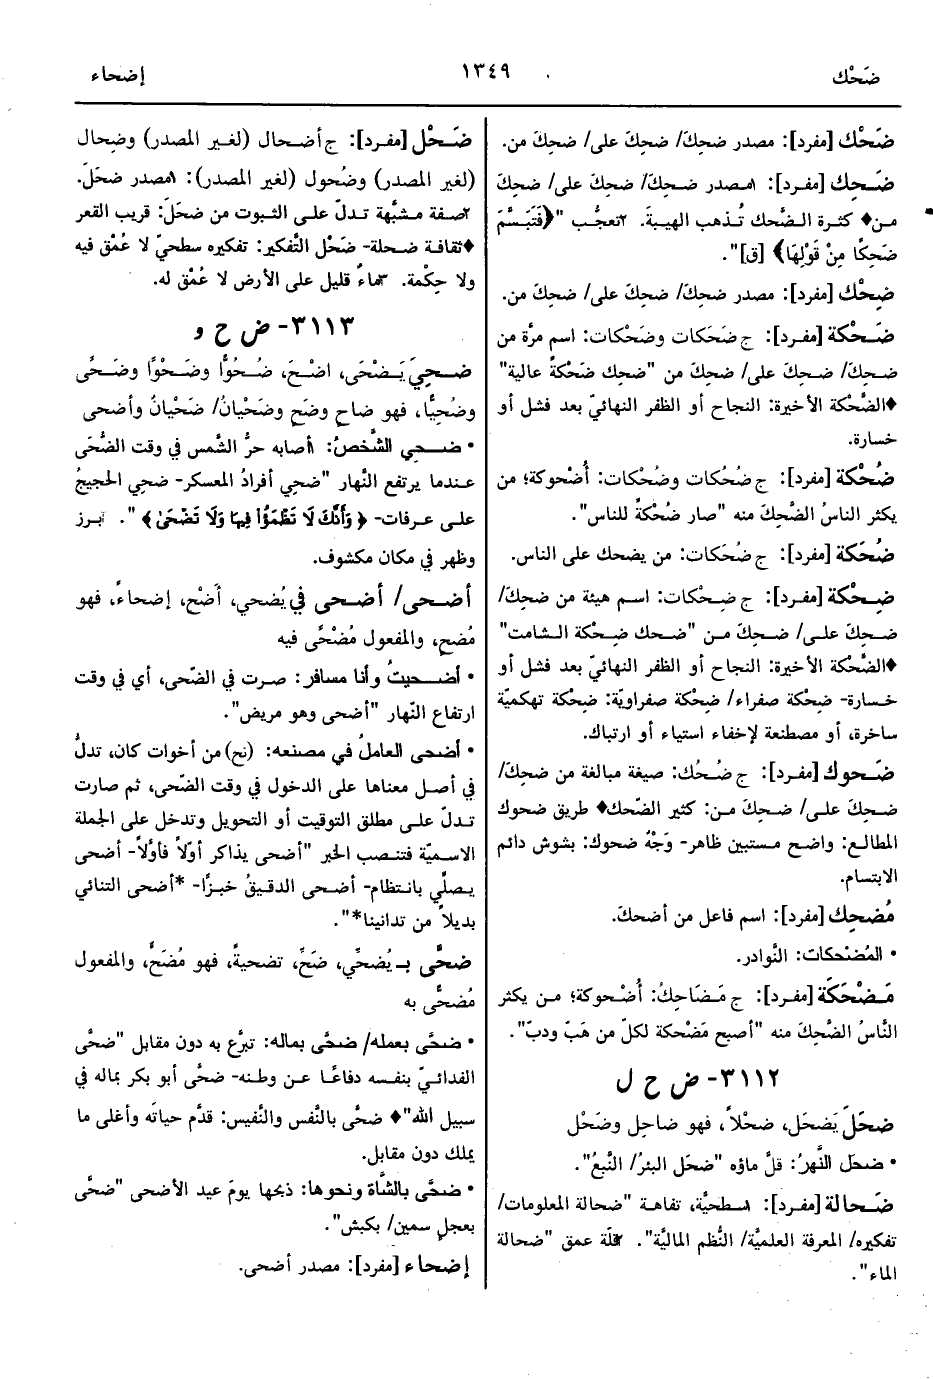 ضَحْك
١٣٤٩
إضحاء
ضَحْك [مفرد]: مصدر ضحِكَ/ ضحِكَ على/ ضحِكَ من.
ضَحِك [مفرد]: ١مصدر ضحِكَ/ ضحِكَ على/ ضحِكَ
من♦ كثرة الضَّحك تُذهب الهيبةَ. ٢تعجُّب "﴿فَتَبَسَّمَ
ضَحِكًا مِنْ قَوْلِهَا﴾ [ق]".
ضِحْك [مفرد]: مصدر ضحِكَ/ ضحِكَ على/ ضحِكَ من.
ضَحْكة [مفرد]: ج ضَحَكات وضَحْكات: اسم مرَّة من
ضحِكَ/ ضحِكَ على/ ضحِكَ من "ضحِك ضَحْكةً عالية"
♦الضَّحْكة الأخيرة: النجاح أو الظفر النهائيّ بعد فشل أو
خسارة.
ضُحْكة [مفرد]: ج ضُحُكات وضُحْكات: أُضْحوكة؛ من
يكثر الناسُ الضَّحِكَ منه "صار ضُحْكةً للناس".
ضُحَكة [مفرد]: ج ضُحَكات: من يضحك على الناس.
ضِحْكة [مفرد]: ج ضِحْكات: اسم هيئة من ضحِكَ/
ضحِكَ على/ ضحِكَ من "ضحك ضِحْكة الشامت"
♦الضِّحْكة الأخيرة: النجاح أو الظفر النهائيّ بعد فشل أو
خسارة- ضِحْكة صفراء/ ضِحْكة صفراويّة: ضِحْكة تهكميّة
ساخرة، أو مصطنعة لإخفاء استياء أو ارتباك.
ضَحوك [مفرد]: ج ضُحُك: صيغة مبالغة من ضحِكَ/
ضحِكَ على/ ضحِكَ من: كثير الضَّحك♦ طريق ضحوك
المطالع: واضح مستبين ظاهر- وَجْهٌ ضحوك: بشوش دائم
الابتسام.
مُضحِك [مفرد]: اسم فاعل من أضحكَ.
• المُضْحكات: النَّوادر.
مَضْحَكَة [مفرد]: ج مَضَاحِكُ: أُضْحوكة؛ من يكثر
النَّاسُ الضَّحِكَ منه "أصبح مَضْحكة لكلّ من هَبّ ودبّ".
٣١١٢- ض ح ل
ضحَلَ يَضحَل، ضحْلاً، فهو ضاحِل وضَحْل
• ضحَل النَّهرُ: قلَّ ماؤه "ضحَل البئرُ/ النَّبعُ".
ضَحالة [مفرد]: ١سطحيَّة، تفاهة "ضحالة المعلومات/
تفكيره/ المعرفة العلميَّة/ النُّظم الماليَّة". ٢قلّة عمق "ضحالة
الماء".
ضَحْل [مفرد]: ج أضحال (لغير المصدر) وضِحال
(لغير المصدر) وضُحول (لغير المصدر): ١مصدر ضحَلَ.
٢صفة مشبَّهة تدلّ على الثبوت من ضحَلَ: قريب القعر
♦ثقافة ضحلة- ضَحْل التَّفكير: تفكيره سطحيّ لا عُمْق فيه
ولا حِكْمة. ٣ماءٌ قليل على الأرض لا عُمْق له.
٣١١٣- ض ح و
ضحِيَ يَضْحَى، اضْحَ، ضُحُوًّا وضَحْوًا وضَحًّى
وضُحِيًّا، فهو ضاحٍ وضَحٍ وضَحْيانُ/ ضَحْيانٌ وأضحى
• ضحِي الشَّخصُ: ١أصابه حرُّ الشَّمس في وقت الضُّحَى
عندما يرتفع النَّهار "ضحِي أفرادُ المعسكر- ضحِي الحجيجُ
على عرفات- ﴿وَأَنَّكَ لَا تَظْمَؤُا فِيهَا وَلَا تَضْحَىٰ﴾". ٢برز
وظهر في مكان مكشوف.
أضحى/ أضحى في يُضحي، أَضْحِ، إضحاءً، فهو
مُضحٍ، والمفعول مُضْحًى فيه
• أضحيتُ وأنا مسافر: صرت في الضّحى، أي في وقت
ارتفاع النّهار "أضحى وهو مريض".
• أضحى العاملُ في مصنعه: (نح) من أخوات كان، تدلُّ
في أصل معناها على الدخول في وقت الضّحى، ثم صارت
تدلّ على مطلق التوقيت أو التحويل وتدخل على الجملة
الاسميّة فتنصب الخبر "أضحى يذاكر أوّلاً فأوّلاً- أضحى
يصلّي بانتظام- أضحى الدقيقُ خبزًا- *أضحى التنائي
بديلاً من تدانينا*".
ضحَّى بـ يُضحِّي، ضَحِّ، تضحيةً، فهو مُضَحٍّ، والمفعول
مُضحًّى به
• ضحَّى بعمله/ ضحَّى بماله: تبرَّع به دون مقابل "ضحَّى
الفدائيّ بنفسه دفاعًا عن وطنه- ضحَّى أبو بكر بماله في
سبيل الله"♦ ضحَّى بالنَّفس والنَّفيس: قدَّم حياتَه وأغلى ما
يملك دون مقابل.
• ضحَّى بالشَّاة ونحوها: ذبحها يومَ عيد الأضحى "ضحَّى
بعجلٍ سمين/ بكبش".
إضحاء [مفرد]: مصدر أضحى.